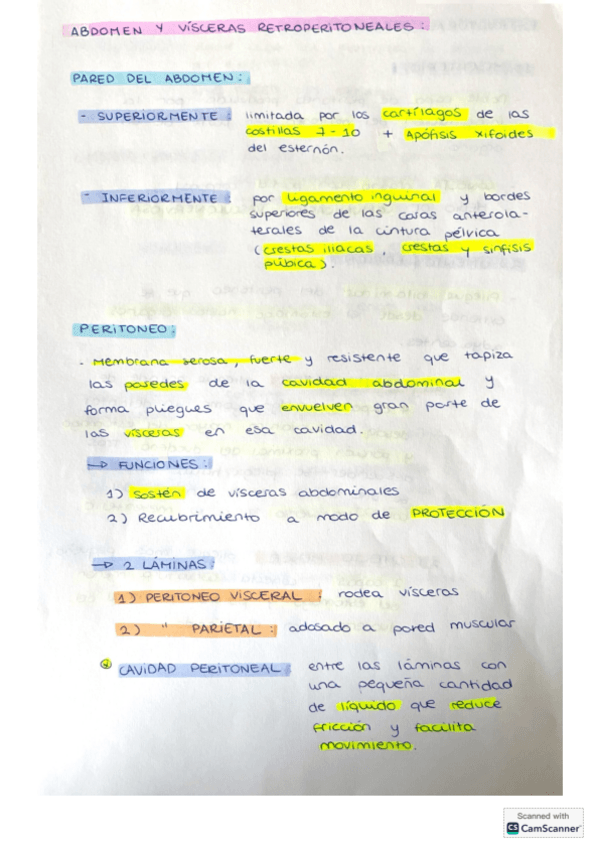 ABDOMEN Y VÍSCERAS RETROPERITONEALES:
PARED DEL ABDOMEN:
- SUPERIORMENTE: limitada por los cartílagos de las
costillas 7-10 + Apófisis xifoides
del esternón.
- INFERIORMENTE: por ligamento inguinal y bordes
superiores de las caras anterola-
terales de la cintura pélvica
(crestas iliacas, crestas y sínfisis
púbica).
PERITONEO:
. Membrana serosa, fuerte y resistente que tapiza
las paredes de la cavidad abdominal y
forma pliegues que envuelven gran parte de
las vísceras en esa cavidad.
→ FUNCIONES:
1) Sostén de vísceras abdominales
2) Recubrimiento a modo de PROTECCIÓN
→ 2 LÁMINAS:
1) PERITONEO VISCERAL: rodea vísceras
2) " PARIETAL: adosado a pared muscular
CAVIDAD PERITONEAL: entre las láminas con
una pequeña cantidad
de líquido que reduce
fricción y facilita
movimiento.
Scanned with
CS CamScanner